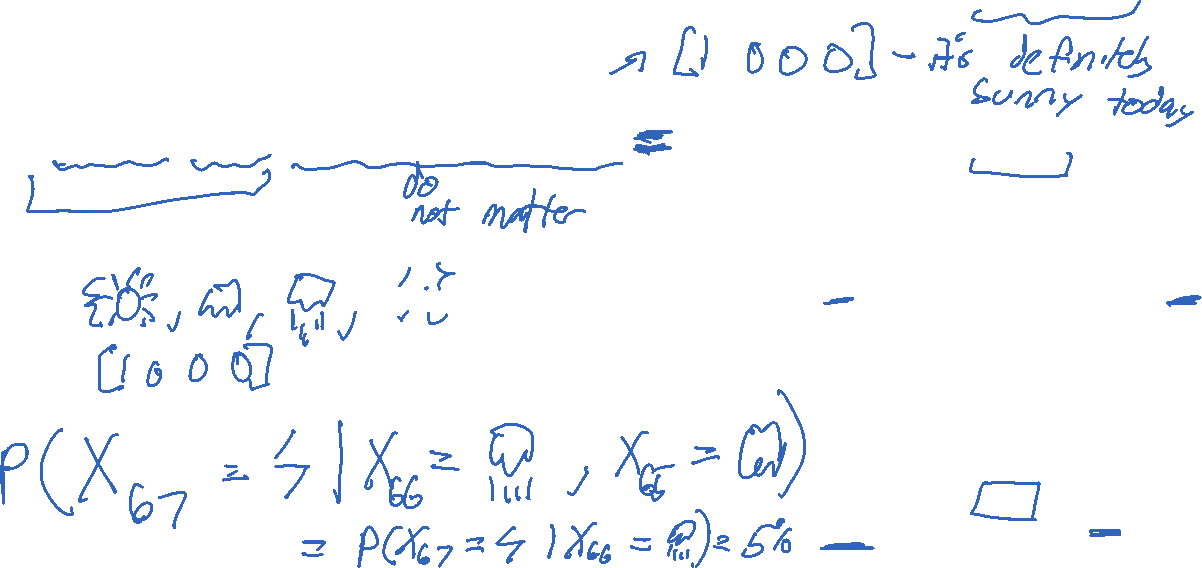 [1 0 0 0] - It's definitely
sunny today
do
not matter
[1 0 0 0]
P(X_67 = ϟ | X_66 = , X_66 = )
= P(X_67 = ϟ | X_66 = ) = 5%